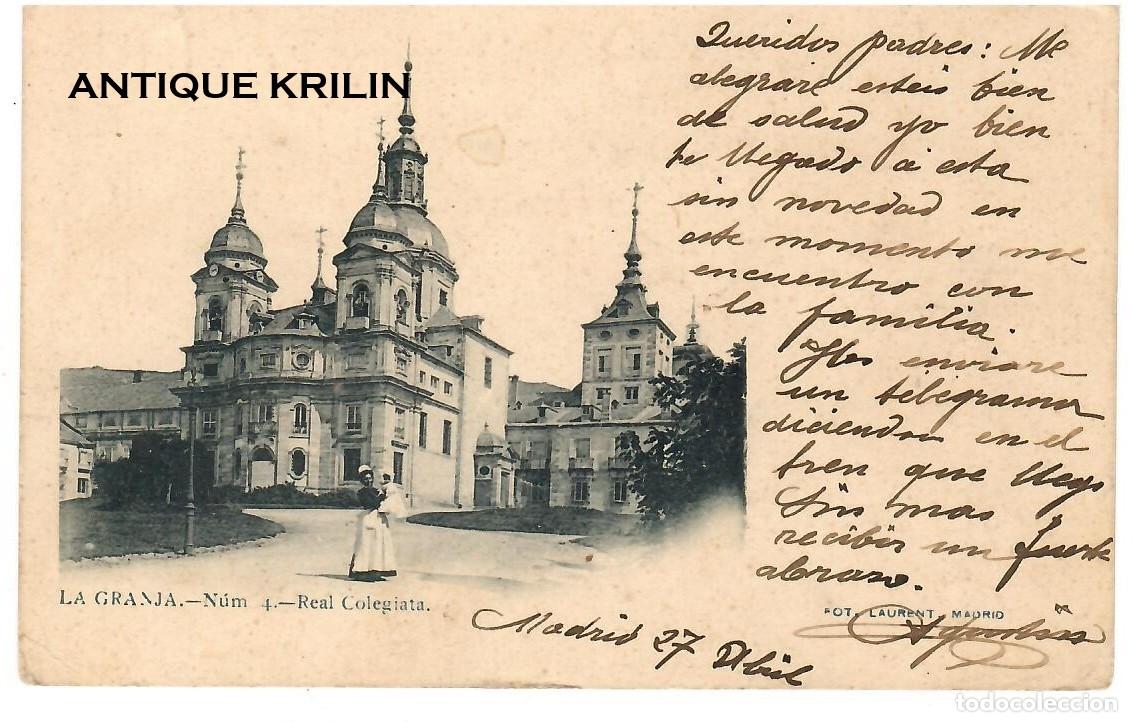 ANTIQUE KRILIN
Queridos padres: Me
alegrare esteis bien
de salud yo bien
he llegado a esta
sin novedad en
este momento me
encuentro con
la familia.
Os enviare
un telegrama
diciendoos en el
tren que llego
Sin mas
recibir un fuerte
abrazo.
Agustin
Madrid 27 Abril
LA GRANJA.—Núm 4.—Real Colegiata.
FOT. LAURENT. MADRID
todocoleccion